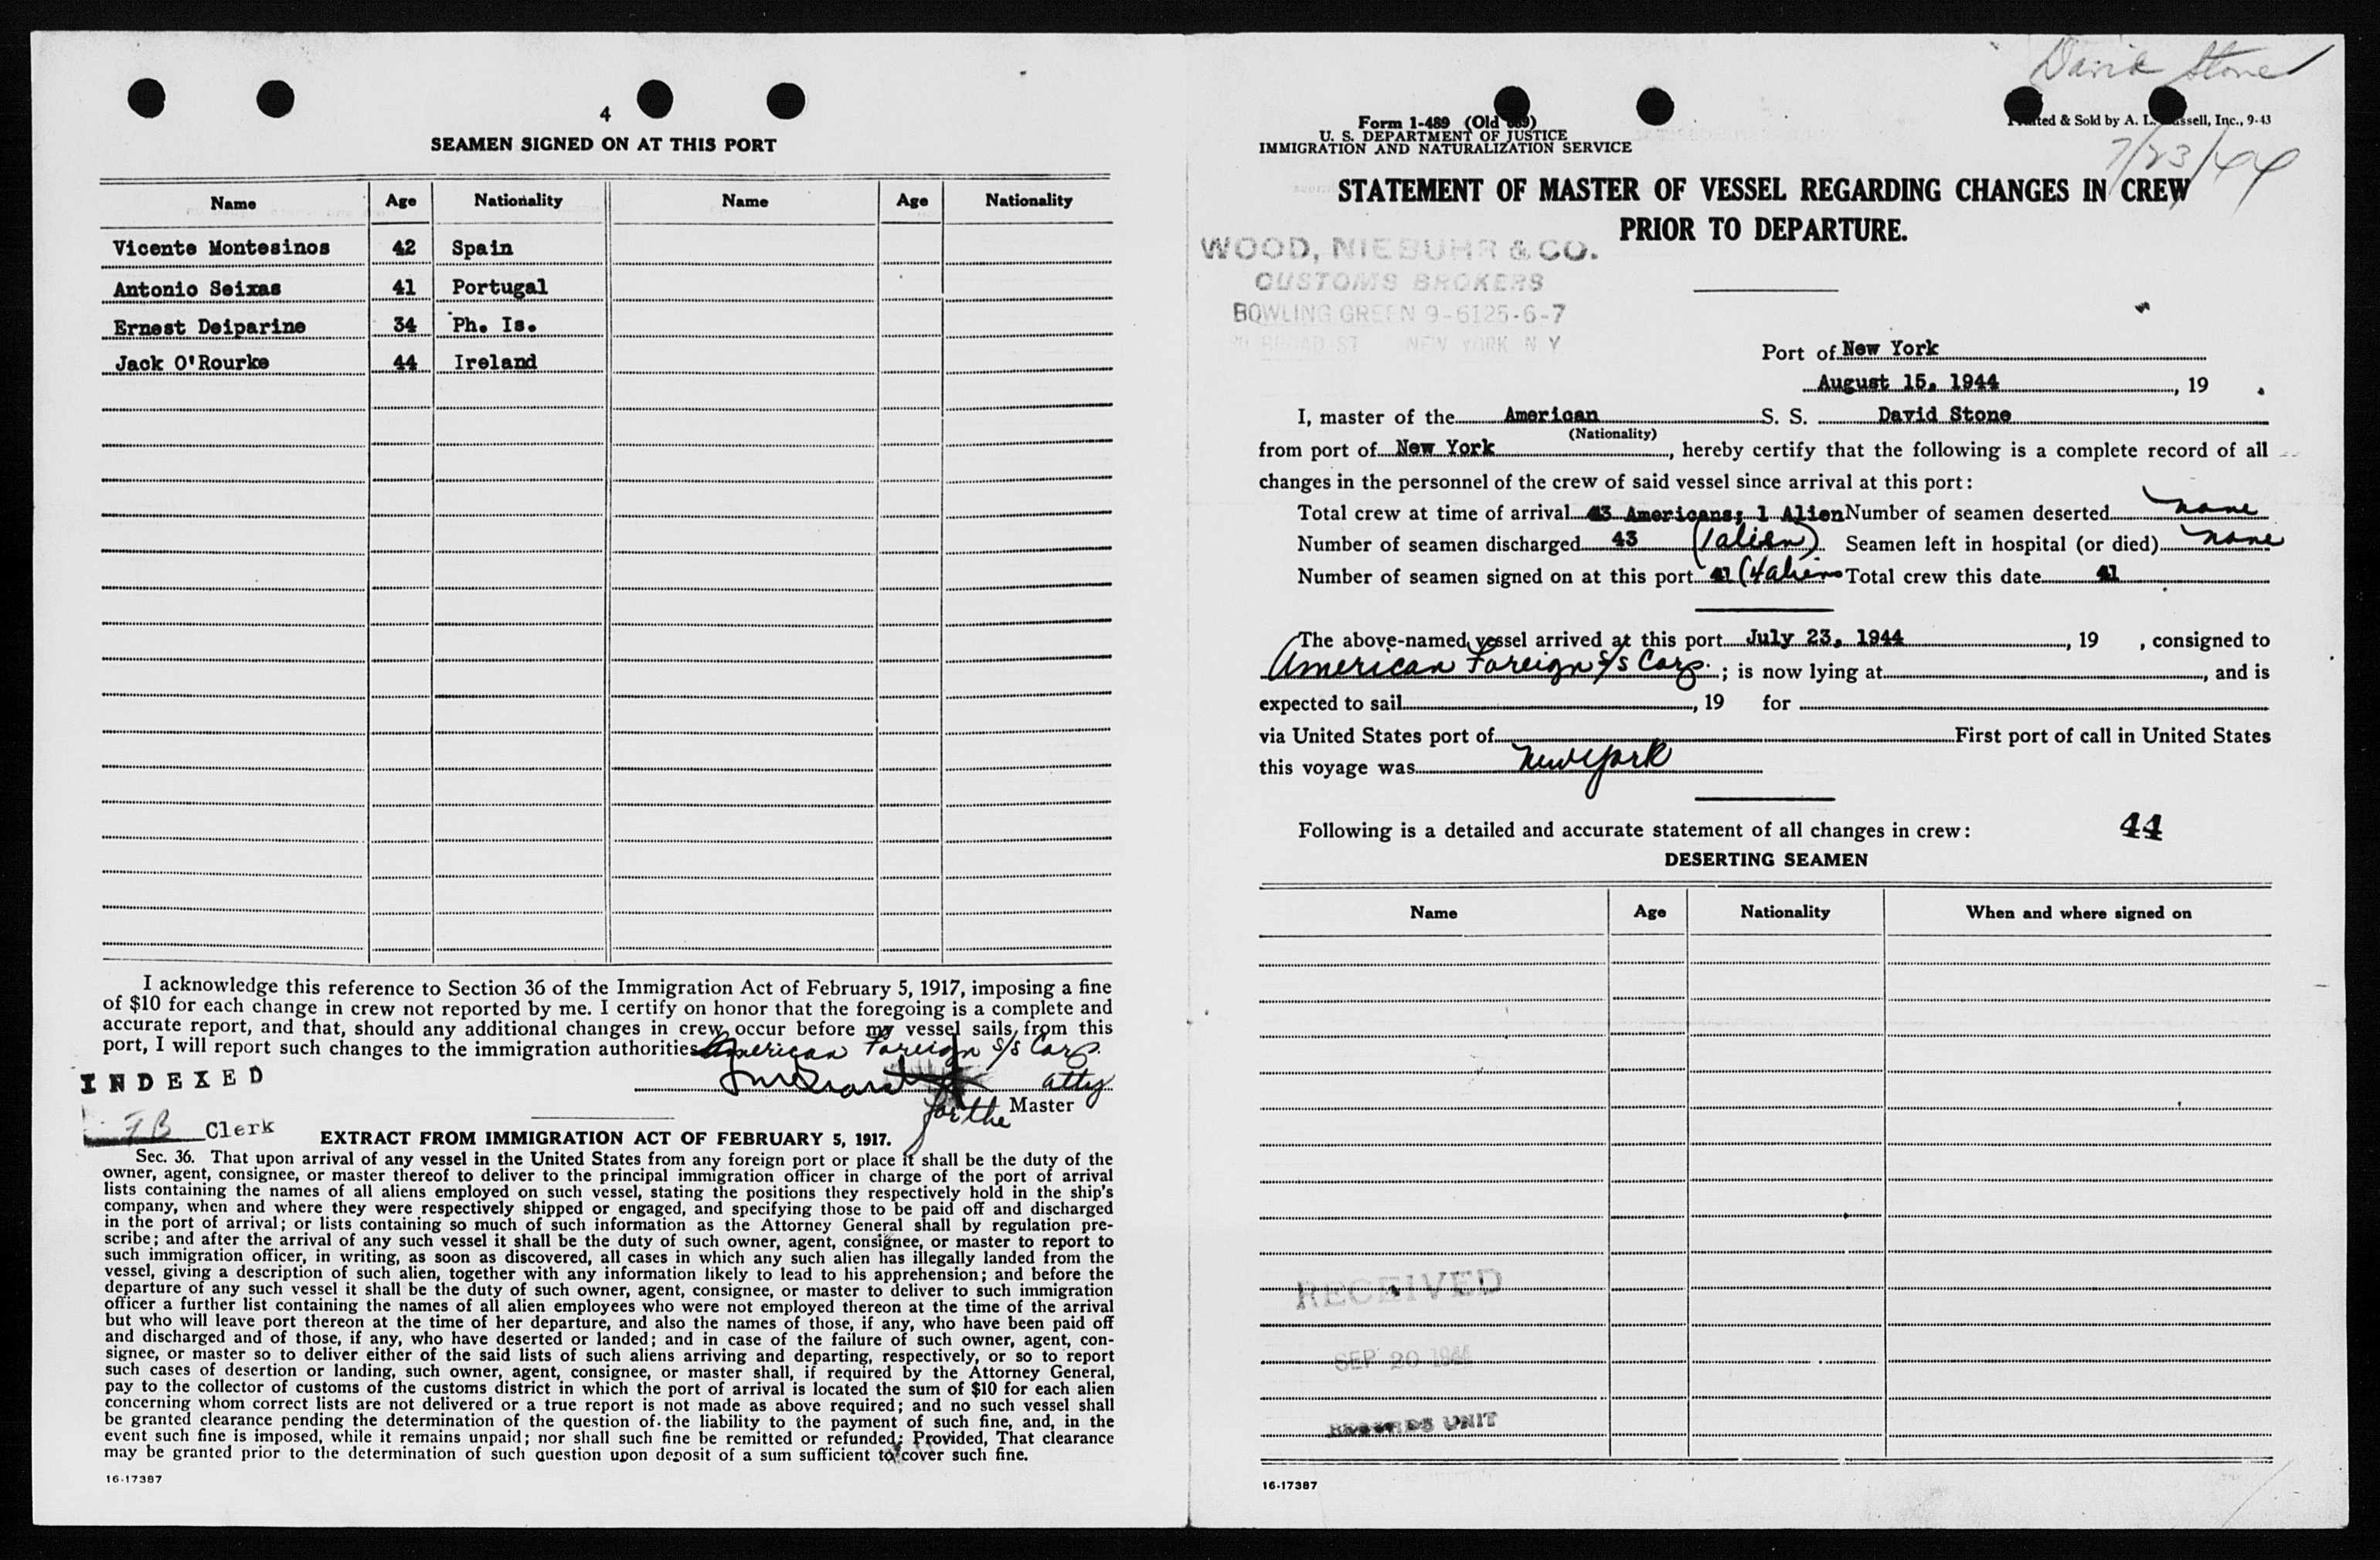 4
SEAMEN SIGNED ON AT THIS PORT
Name Age Nationality Name Age Nationality
Vicente Montesinos 42 Spain
Antonio Seixas 41 Portugal
Ernest Deiparine 34 Ph. Is.
Jack O'Rourke 44 Ireland
I acknowledge this reference to Section 36 of the Immigration Act of February 5, 1917, imposing a fine
of $10 for each change in crew not reported by me. I certify on honor that the foregoing is a complete and
accurate report, and that, should any additional changes in crew occur before my vessel sails from this
port, I will report such changes to the immigration authorities American Foreign S/S Corp.
atty
for the Master
INDEXED
FB Clerk
EXTRACT FROM IMMIGRATION ACT OF FEBRUARY 5, 1917.
Sec. 36. That upon arrival of any vessel in the United States from any foreign port or place it shall be the duty of the
owner, agent, consignee, or master thereof to deliver to the principal immigration officer in charge of the port of arrival
lists containing the names of all aliens employed on such vessel, stating the positions they respectively hold in the ship's
company, when and where they were respectively shipped or engaged, and specifying those to be paid off and discharged
in the port of arrival; or lists containing so much of such information as the Attorney General shall by regulation pre-
scribe; and after the arrival of any such vessel it shall be the duty of such owner, agent, consignee, or master to report to
such immigration officer, in writing, as soon as discovered, all cases in which any such alien has illegally landed from the
vessel, giving a description of such alien, together with any information likely to lead to his apprehension; and before the
departure of any such vessel it shall be the duty of such owner, agent, consignee, or master to deliver to such immigration
officer a further list containing the names of all alien employees who were not employed thereon at the time of the arrival
but who will leave port thereon at the time of her departure, and also the names of those, if any, who have been paid off
and discharged and of those, if any, who have deserted or landed; and in case of the failure of such owner, agent, con-
signee, or master so to deliver either of the said lists of such aliens arriving and departing, respectively, or so to report
such cases of desertion or landing, such owner, agent, consignee, or master shall, if required by the Attorney General,
pay to the collector of customs of the customs district in which the port of arrival is located the sum of $10 for each alien
concerning whom correct lists are not delivered or a true report is not made as above required; and no such vessel shall
be granted clearance pending the determination of the question of the liability to the payment of such fine, and, in the
event such fine is imposed, while it remains unpaid; nor shall such fine be remitted or refunded: Provided, That clearance
may be granted prior to the determination of such question upon deposit of a sum sufficient to cover such fine.
16-17387
David Stone
7/23/44
Form 1-489 (Old
U. S. DEPARTMENT OF JUSTICE
IMMIGRATION AND NATURALIZATION SERVICE
& Sold by A. L. Inc., 9-43
STATEMENT OF MASTER OF VESSEL REGARDING CHANGES IN CREW
PRIOR TO DEPARTURE.
WOOD, NIEBUHR & CO.
CUSTOMS BROKERS
BOWLING GREEN 9-6125-6-7
BROAD ST NEW YORK N Y
Port of New York
August 15, 1944, 19 .
I, master of the American S. S. David Stone
(Nationality)
from port of New York, hereby certify that the following is a complete record of all
changes in the personnel of the crew of said vessel since arrival at this port:
Total crew at time of arrival 43 Americans; 1 Alien Number of seamen deserted none
Number of seamen discharged 43 (1 alien) Seamen left in hospital (or died) none
Number of seamen signed on at this port 41 (4 aliens Total crew this date 41
The above-named vessel arrived at this port July 23, 1944, 19 , consigned to
American Foreign S/S Corp. ; is now lying at , and is
expected to sail , 19 for
via United States port of First port of call in United States
this voyage was New York
Following is a detailed and accurate statement of all changes in crew: 44
DESERTING SEAMEN
Name Age Nationality When and where signed on
RECEIVED
SEP 20 1944
RECORDS UNIT
16-17387